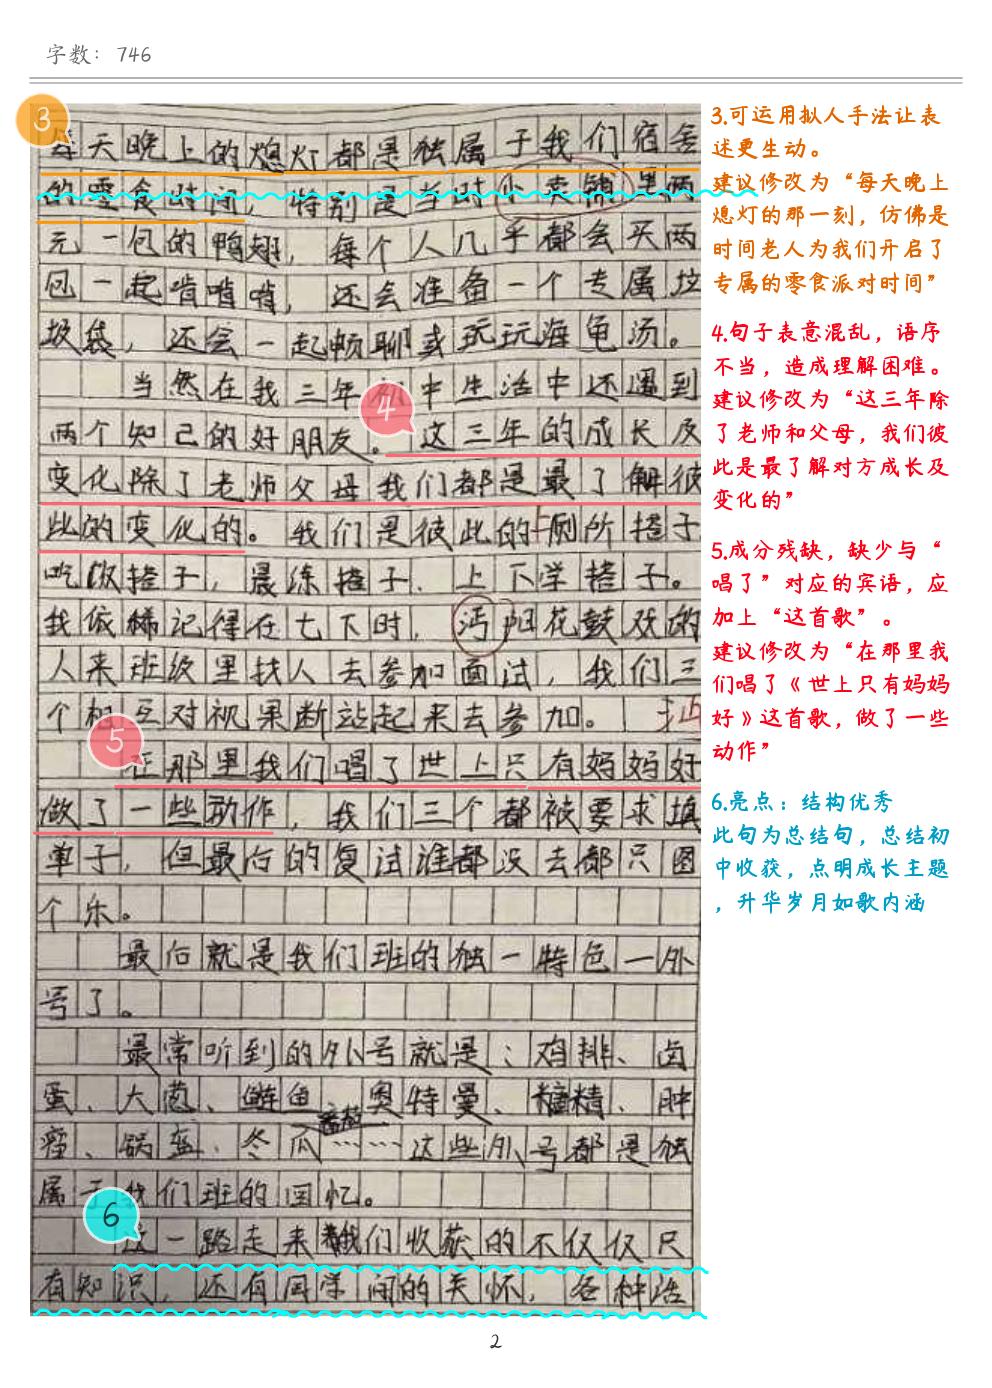 字数：746
3
每天晚上的熄灯都是独属于我们宿舍
的零食时间，特别是当时小卖铺里两
元一包的鸭翅，每个人几乎都会买两
包一起啃啃啃，还会准备一个专属垃
圾袋，还会一起畅聊或玩玩海龟汤。
当然在我三年初中生活中还遇到
4
两个知己的好朋友。这三年的成长及
变化除了老师父母我们都是最了解彼
此的变化的。我们是彼此的上厕所搭子
吃饭搭子，晨练搭子、上下学搭子。
我依稀记得在七下时，沔阳花鼓戏的
人来班级里找人去参加面试，我们三
个相互对视果断站起来去参加。
5
在那里我们唱了世上只有妈妈好
做了一些动作，我们三个都被要求填
单子，但最后的复试谁都没去都只图
个乐。
最后就是我们班的独一特色一外
号了。
最常听到的外号就是：鸡排、卤
蛋、大葱、鲢鱼、奥特曼、糖精、肿
瘤、锅盔、冬瓜……这些外号都是独
属于我们班的回忆。
6
这一路走来我们收获的不仅仅只
有知识，还有同学间的关怀，各种活
3.可运用拟人手法让表
述更生动。
建议修改为“每天晚上
熄灯的那一刻，仿佛是
时间老人为我们开启了
专属的零食派对时间”
4.句子表意混乱，语序
不当，造成理解困难。
建议修改为“这三年除
了老师和父母，我们彼
此是最了解对方成长及
变化的”
5.成分残缺，缺少与“
唱了”对应的宾语，应
加上“这首歌”。
建议修改为“在那里我
们唱了《世上只有妈妈
好》这首歌，做了一些
动作”
6.亮点：结构优秀
此句为总结句，总结初
中收获，点明成长主题
，升华岁月如歌内涵
2